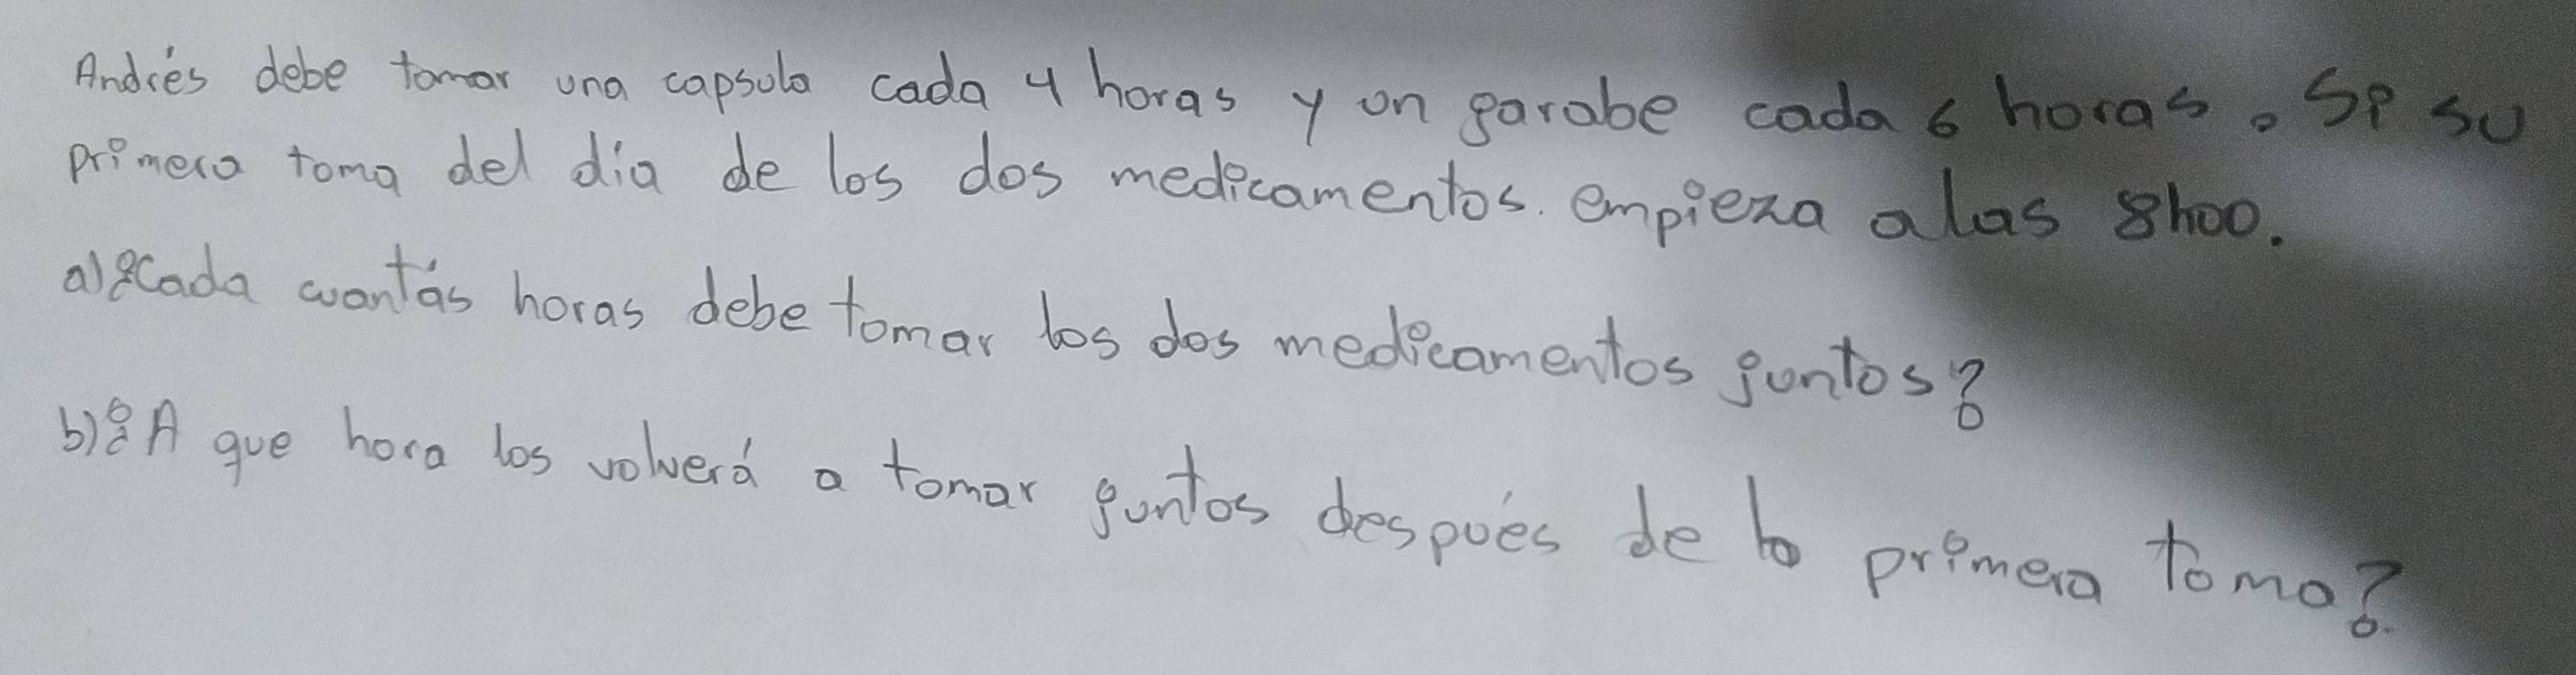 Andrés debe tomar una capsula cada 4 horas y un jarabe cada 6 horas. Si su
primera toma del día de los dos medicamentos. empieza a las 8h00.
a)¿Cada cuantás horas debe tomar los dos medicamentos juntos?
b)¿A que hora los volverá a tomar juntos después de la primera toma?